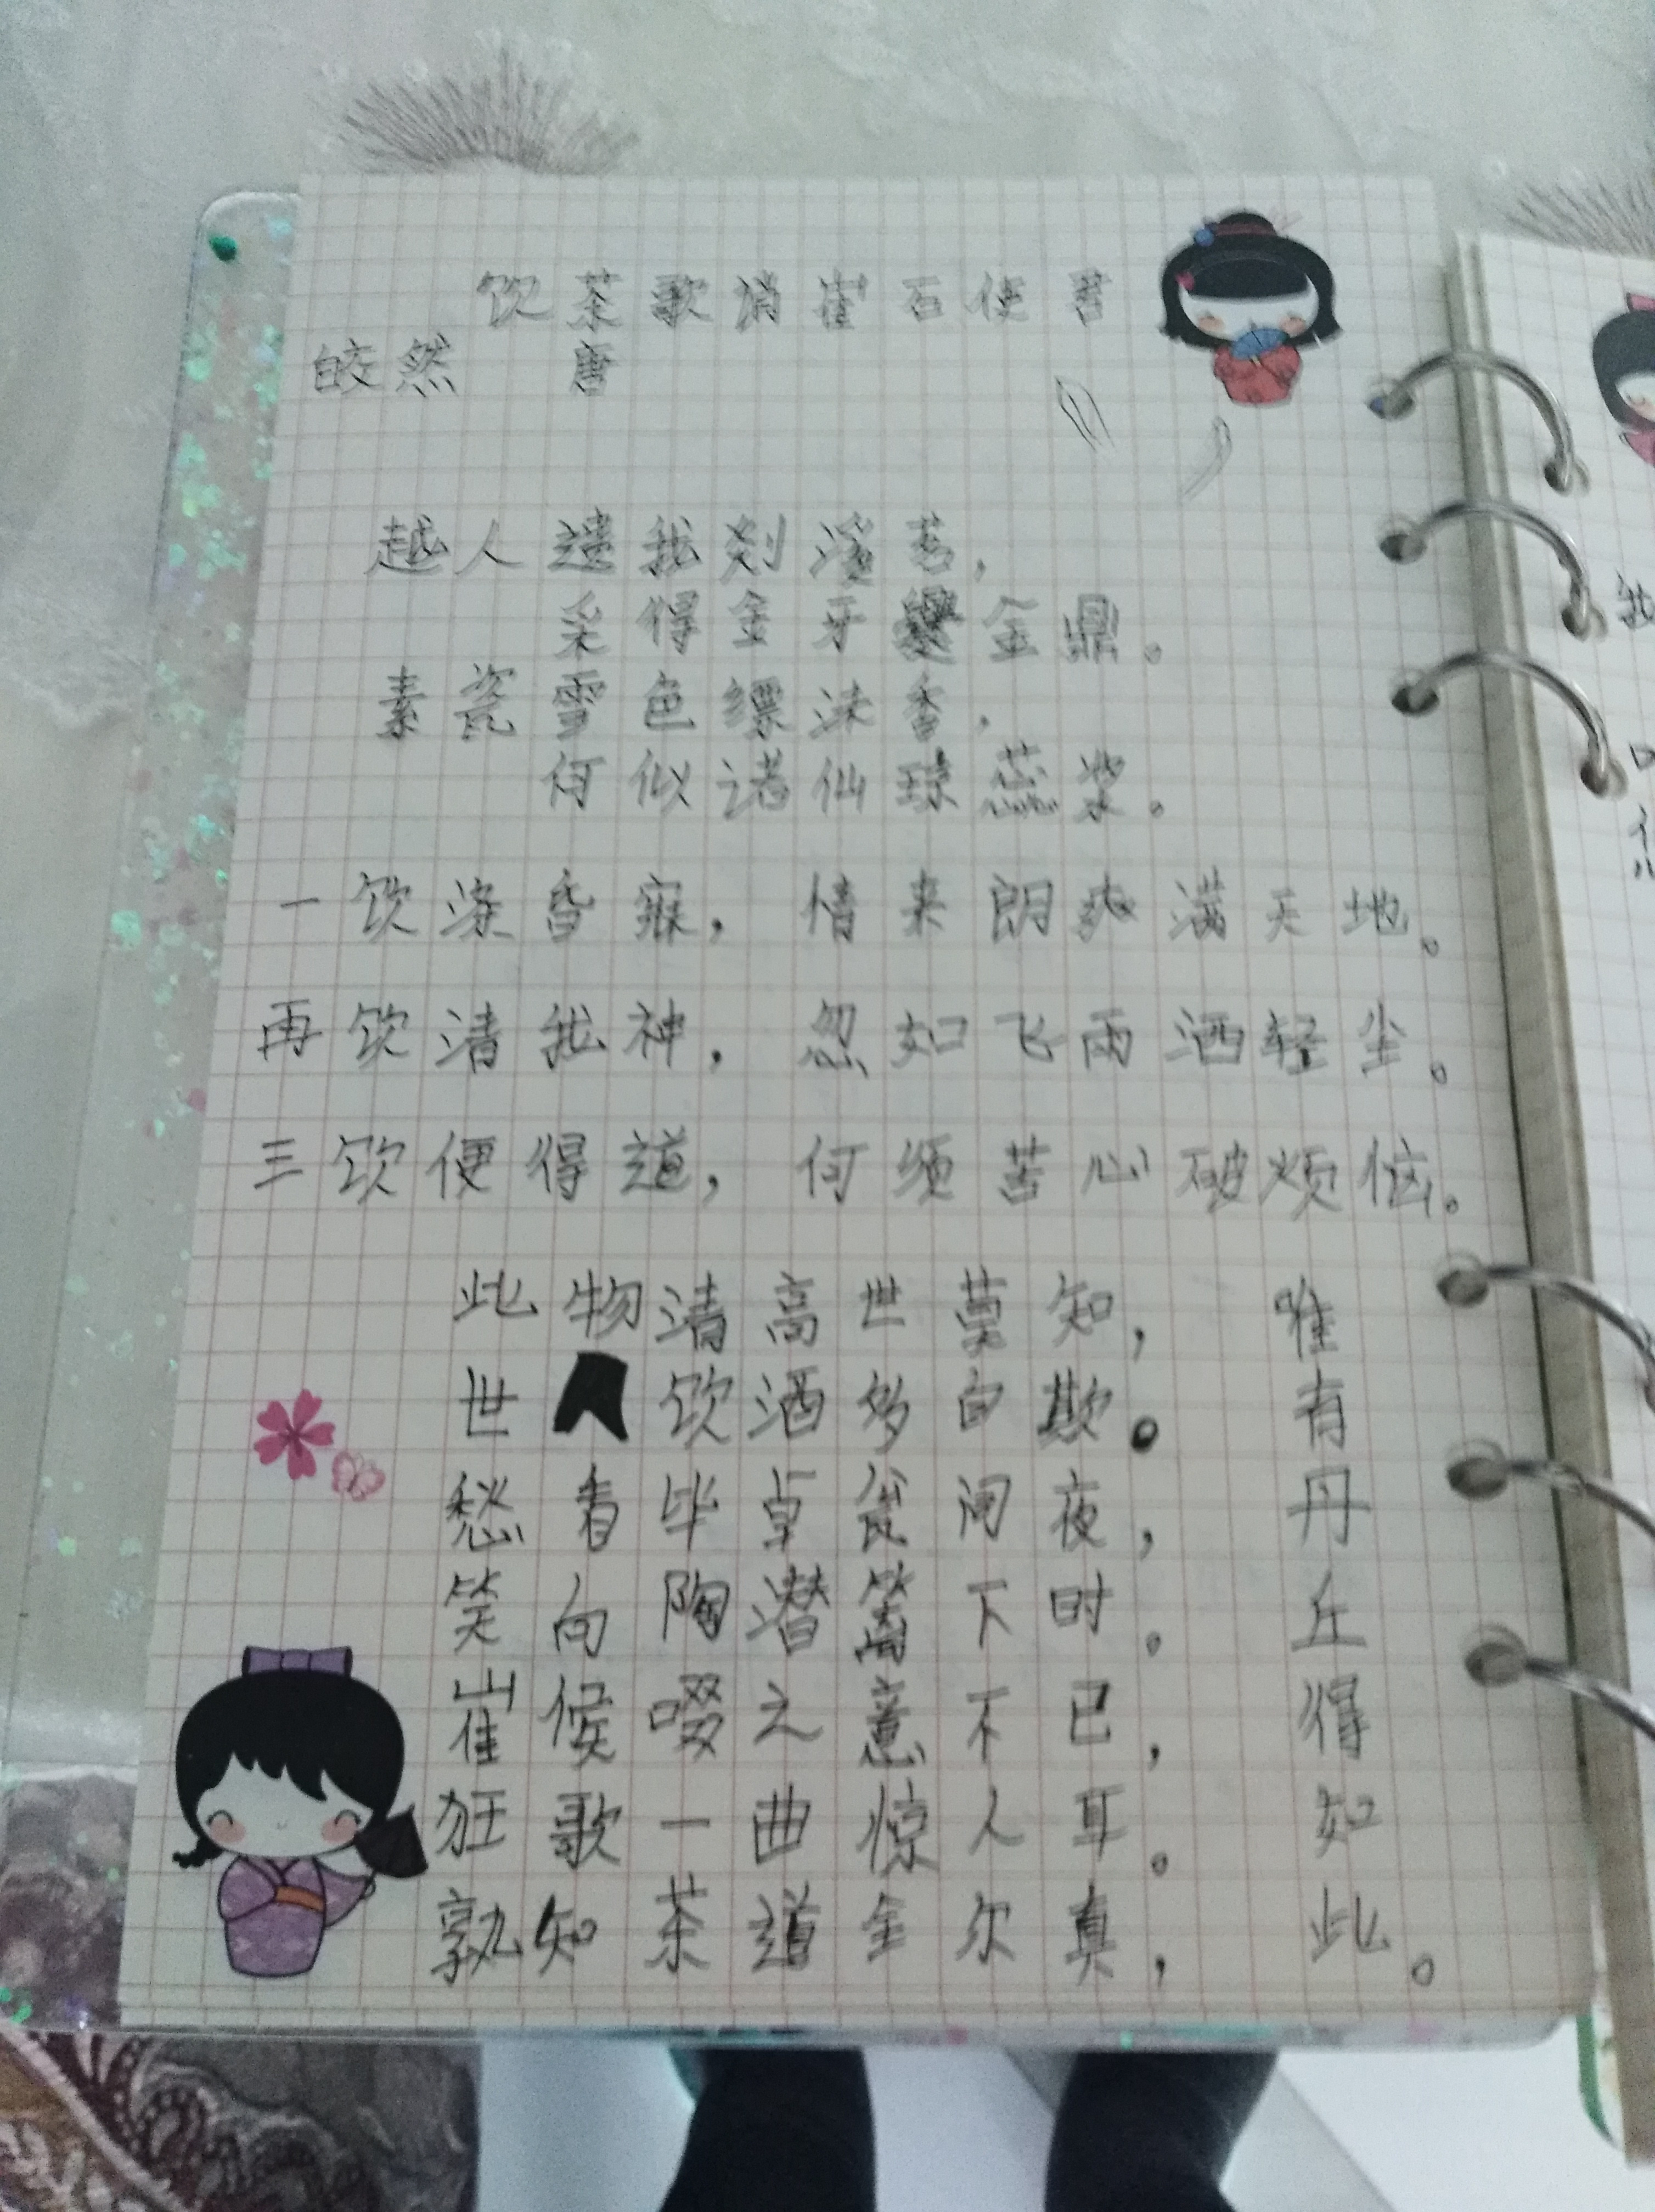 饮茶歌诮崔石使君
皎然 唐
越人遗我剡溪茗，
采得金牙爨金鼎。
素瓷雪色缥沫香，
何似诸仙琼蕊浆。
一饮涤昏寐，情来朗爽满天地。
再饮清我神，忽如飞雨洒轻尘。
三饮便得道，何须苦心破烦恼。
此物清高世莫知，
世人饮酒多自欺。
愁看毕卓瓮间夜，
笑向陶潜篱下时。
崔候啜之意不已，
狂歌一曲惊人耳。
孰知茶道全尔真，
唯有丹丘得如此。
我